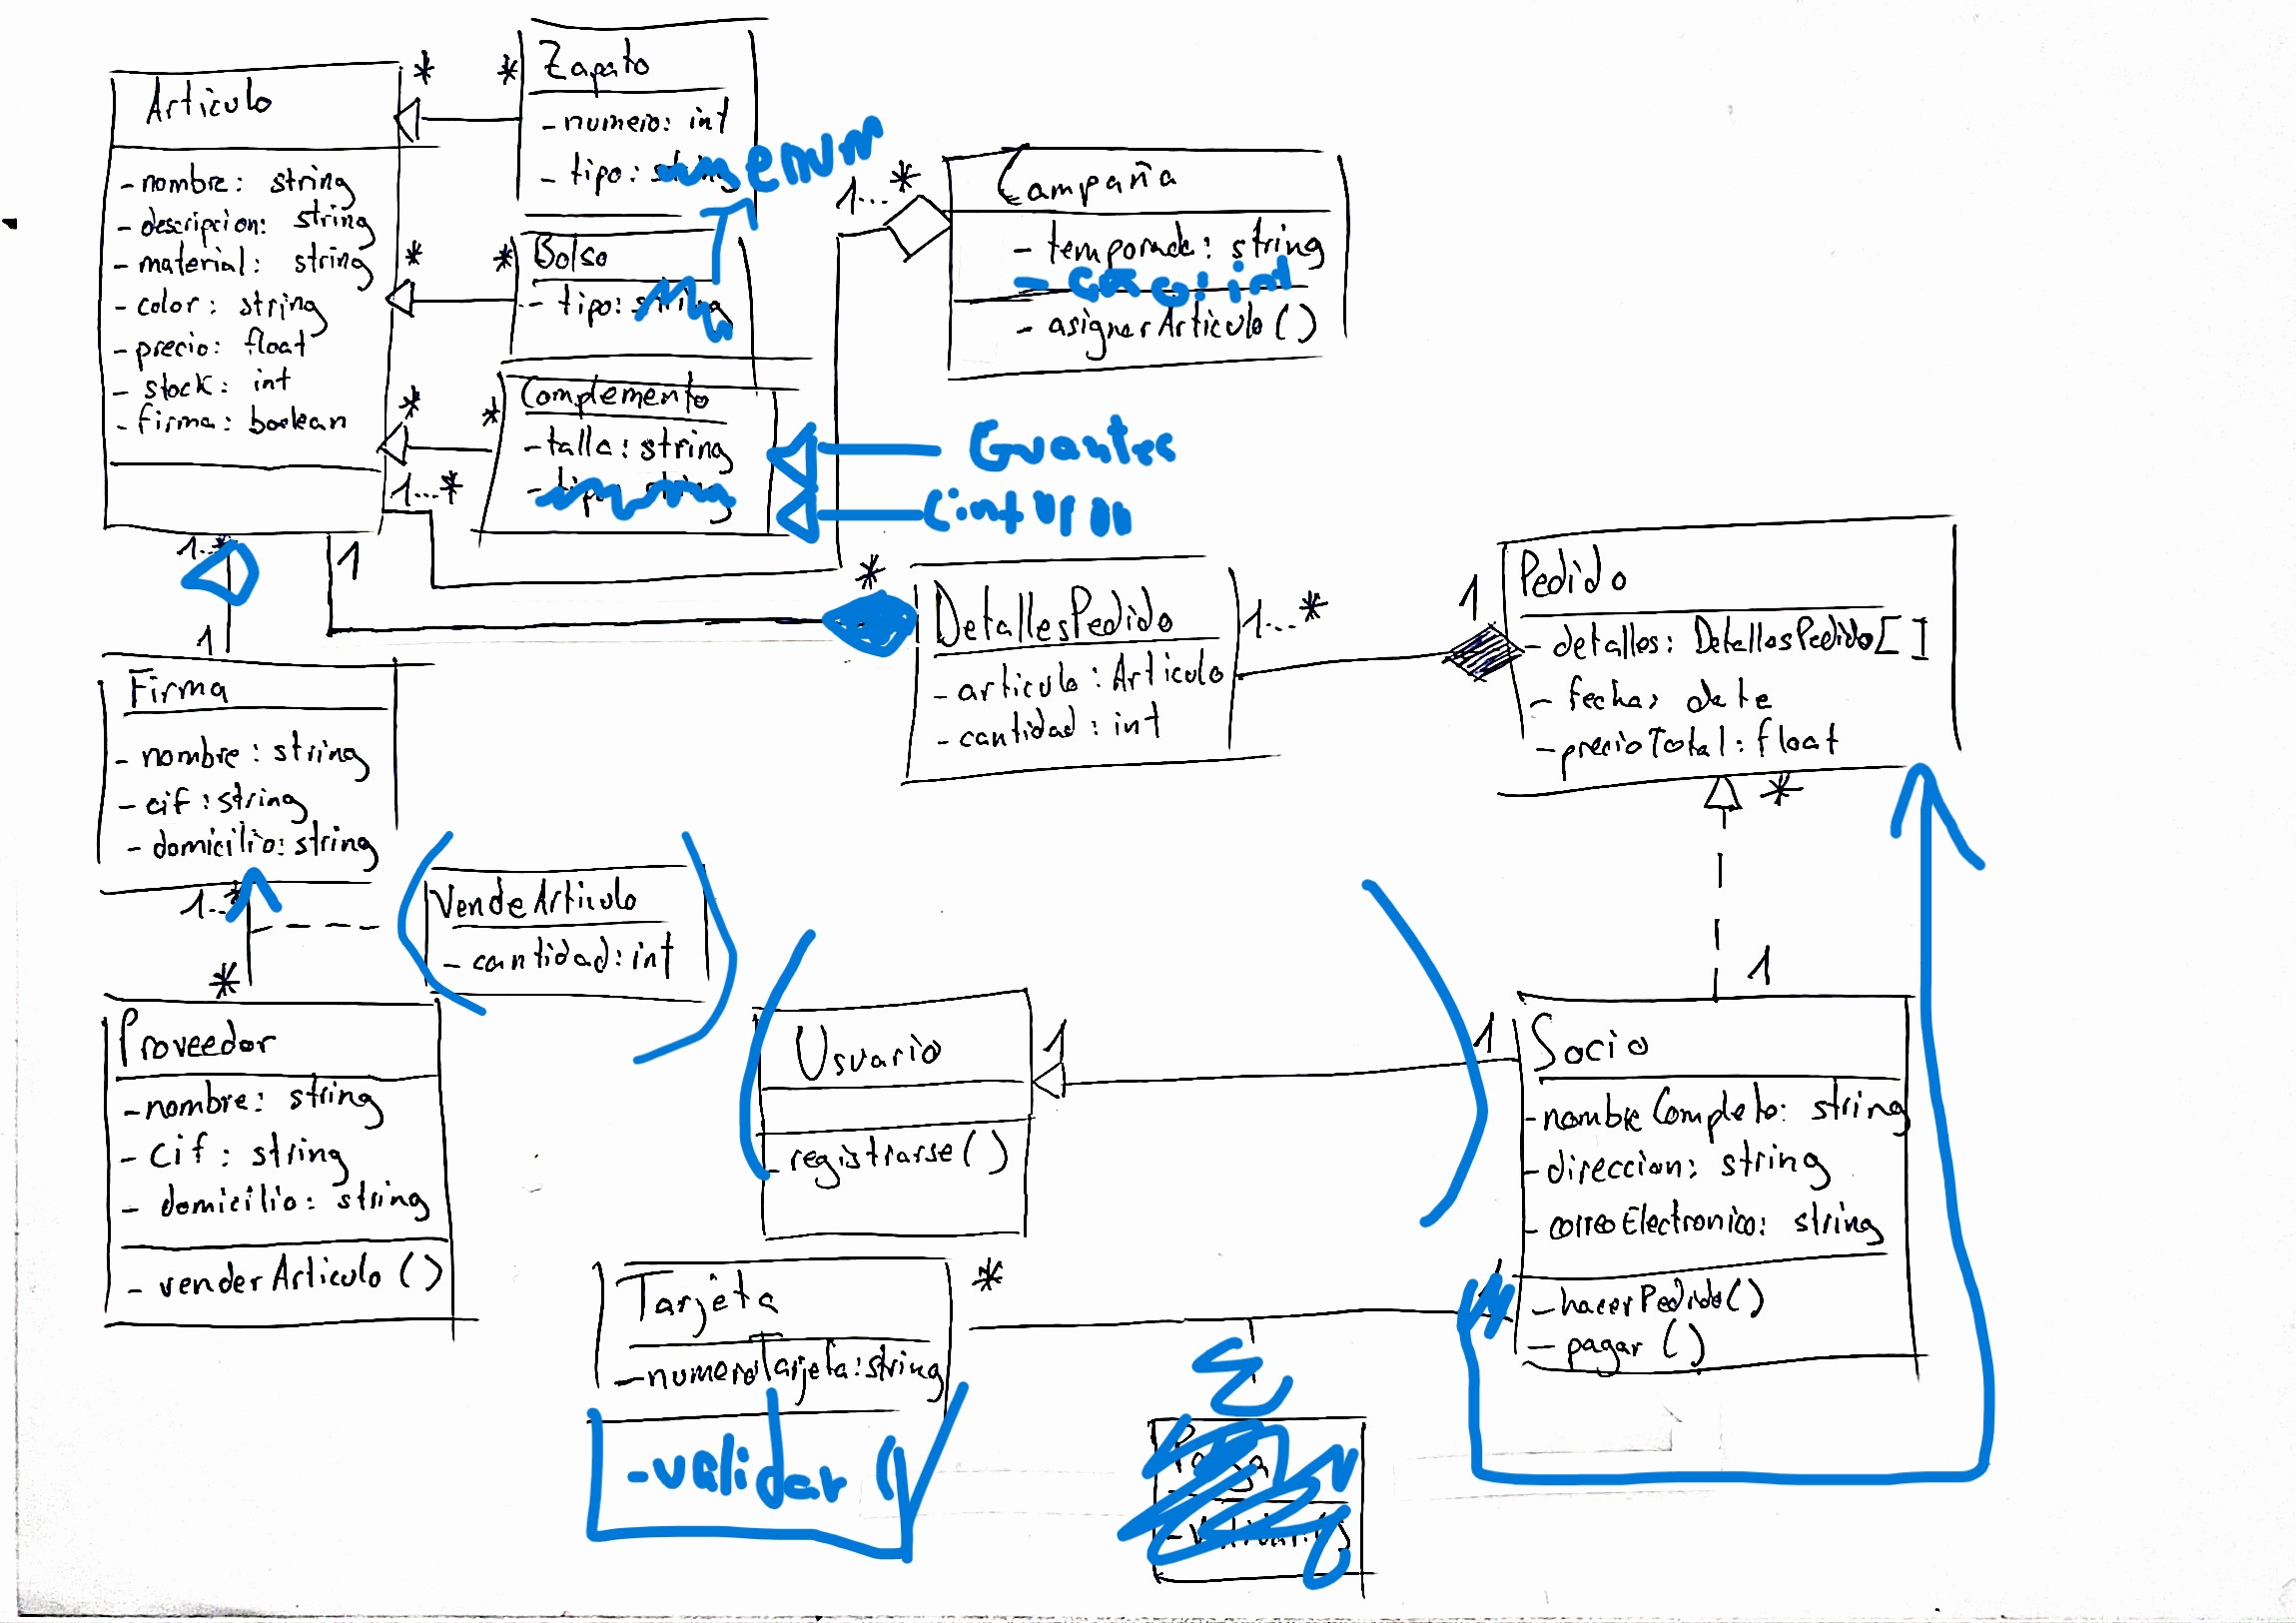 Articulo
- nombre: string
- descripcion: string
- material: string
- color: string
- precio: float
- stock: int
- firma: boolean
* *
Zapato
- numero: int
- tipo: enum
* *
Bolso
- tipo:
* *
Complemento
- talla: string
Guantes
Cinturon
1...*
1...*
Campaña
- temporada: string
: int
- asignarArticulo()
1..*
1
1
*
DetallesPedido
- articulo: Articulo
- cantidad: int
1...*
1
Pedido
- detalles: DetallesPedido[]
- fecha: date
- precioTotal: float
*
1
Firma
- nombre: string
- cif: string
- domicilio: string
1..*
VendeArticulo
- cantidad: int
*
Proveedor
- nombre: string
- cif: string
- domicilio: string
- venderArticulo()
Usuario
- registrarse()
1
1
Socio
- nombreCompleto: string
- direccion: string
- correoElectronico: string
- hacerPedido()
- pagar()
Tarjeta
- numeroTarjeta: string
- validar()
*